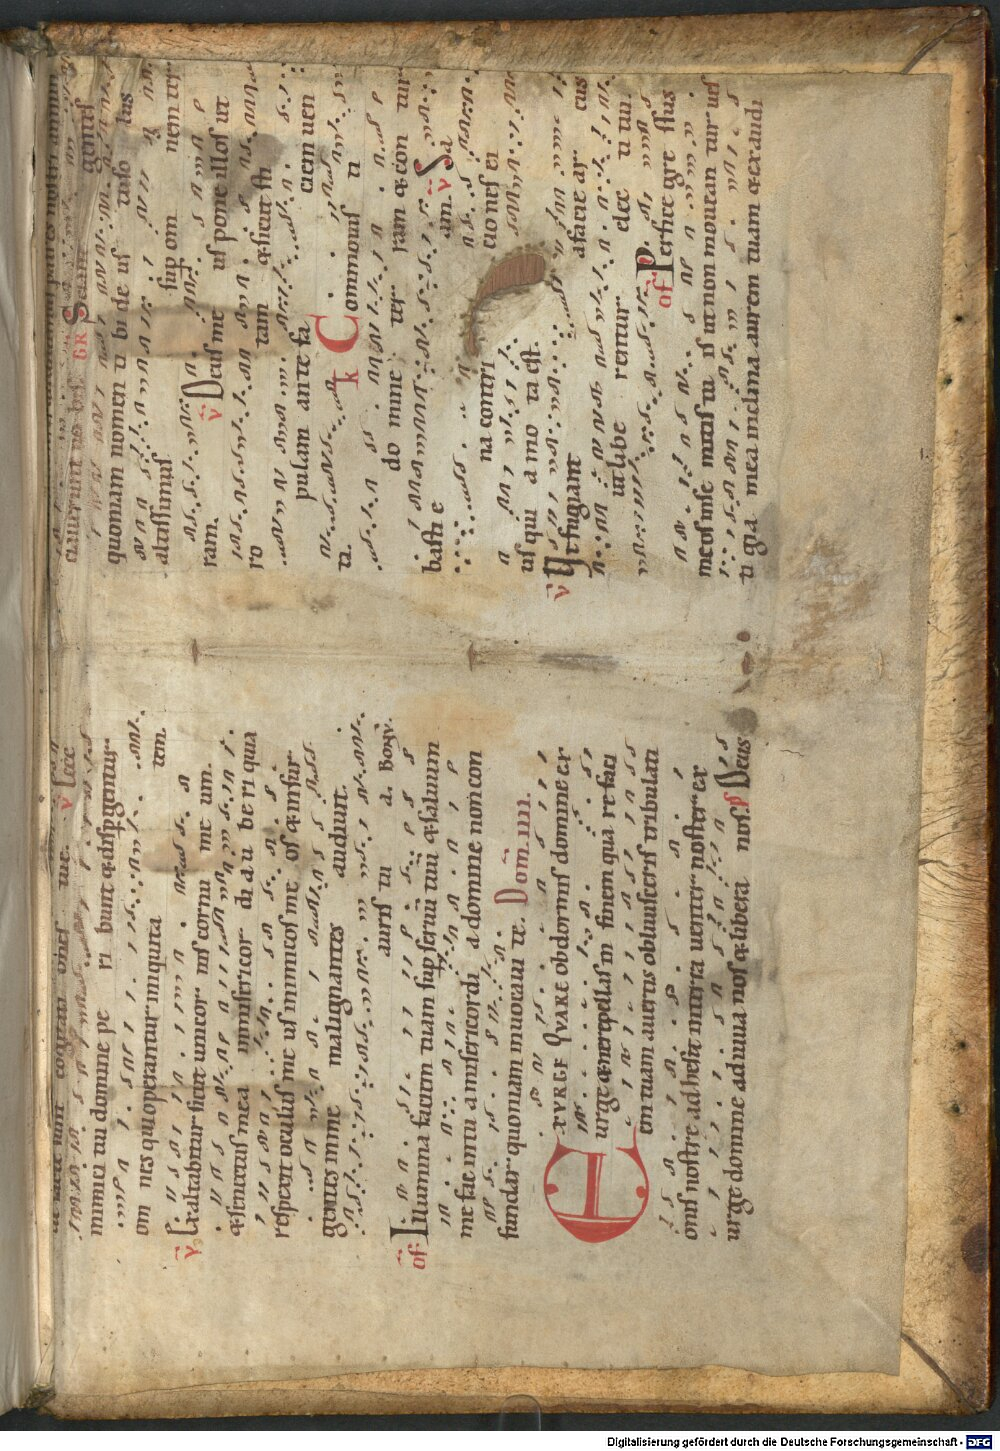 cogitati ones tue. v Ecce
inimici tui domine pe ri bunt & dispgentur
om nes qui operantur iniquita tem.
v Exaltabitur sicut unicor nis cornu me um.
& senectus mea in misericor di a u be ri qua
respexit oculus me us inimicos me os & insur
gentes in me malignantes audiunt.
auris tu a.
of Illumina faciem tuam sup seruu tuu & saluum
me fac in tu a misericordi a domine non con
fundar quoniam inuocaui te. Dom. IIII.
EXVRGE QVARE obdormis domine ex
urge & ne repellas in finem qua re faci
em tuam auertis obliuisceris tribulati
onis nostre ad hesit in terra uenter noster ex
urge domine adiuua nos & libera nos. p Deus
patres nostri annun
ciauerunt no bis. GR Sciant gentes
quoniam nomen ti bi de us tu so lus
altissimus sup om nem ter
ram. v Deus me us pone illos ut
ro tam & sicut sti
pulam an te fa ciem uen
ti. Commouis ti
do mine ter ram & con tur
basti e am. v Sa
na contri cio nes ei
us qui a mo ta est.
v Ut fugiant a facie ar cus
ut libe rentur elec ti tui.
of Perfice gre ssus
meos in se mitis tu is ut non mouean tur ues
ti gia mea inclina aurem tuam & exaudi
Digitalisierung gefördert durch die Deutsche Forschungsgemeinschaft - DFG